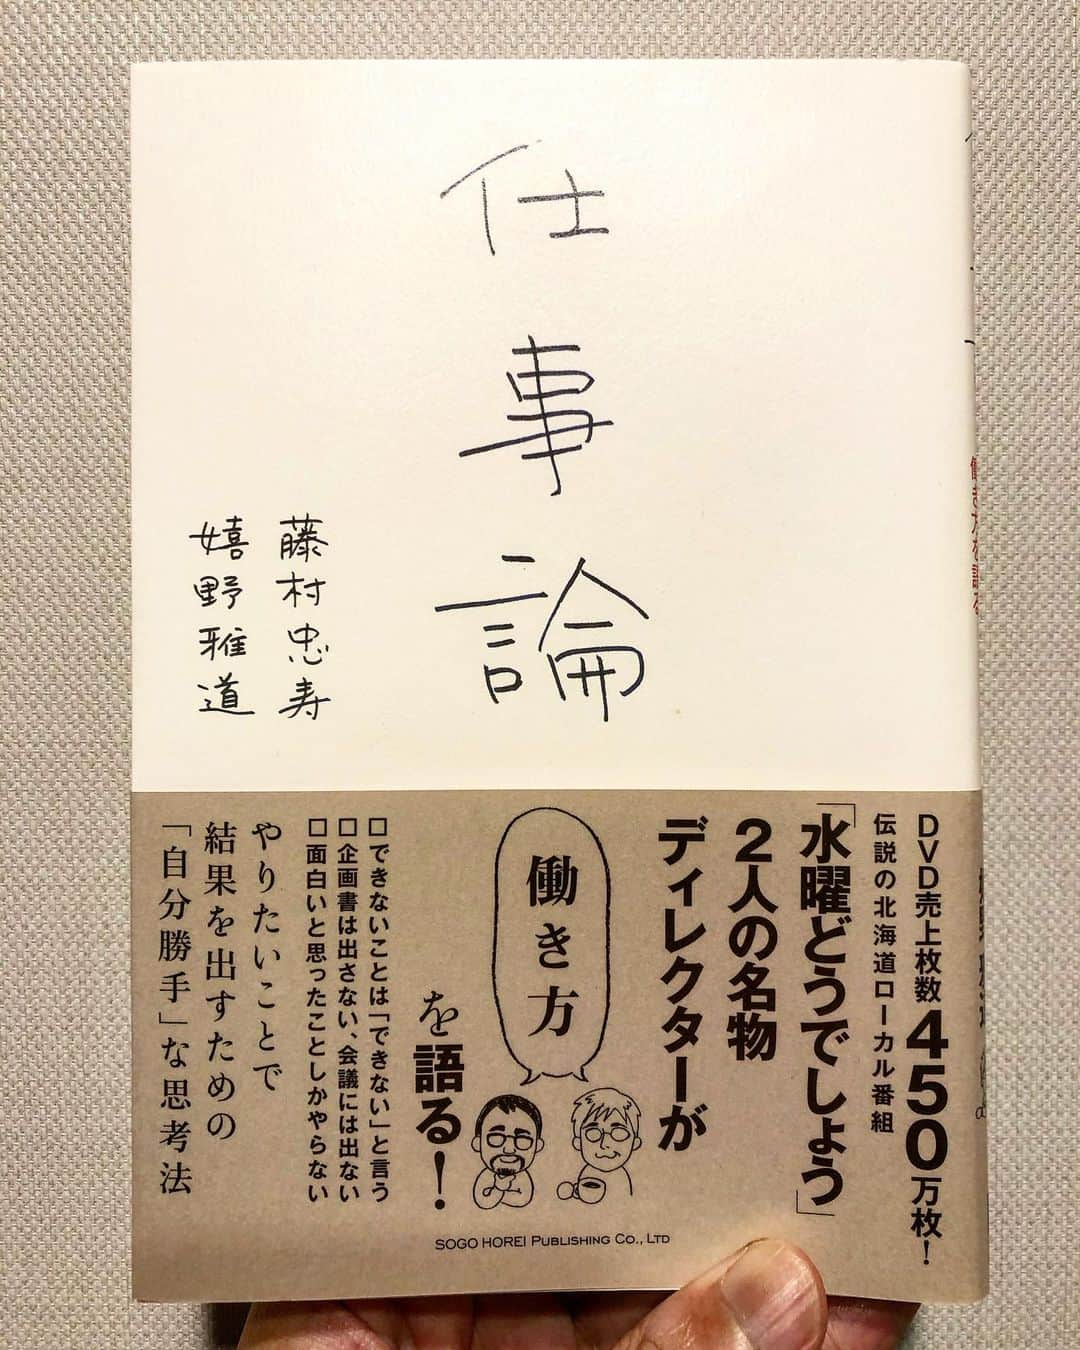 仕事論
藤村忠寿
嬉野雅道
DVD売上枚数450万枚！
伝説の北海道ローカル番組
「水曜どうでしょう」
2人の名物
ディレクターが
働き方
を語る！
□できないことは「できない」と言う
□企画書は出さない、会議には出ない
□面白いと思ったことしかやらない
やりたいことで
結果を出すための
「自分勝手」な思考法
SOGO HOREI PUBLISHING CO., LTD
働き方を語る